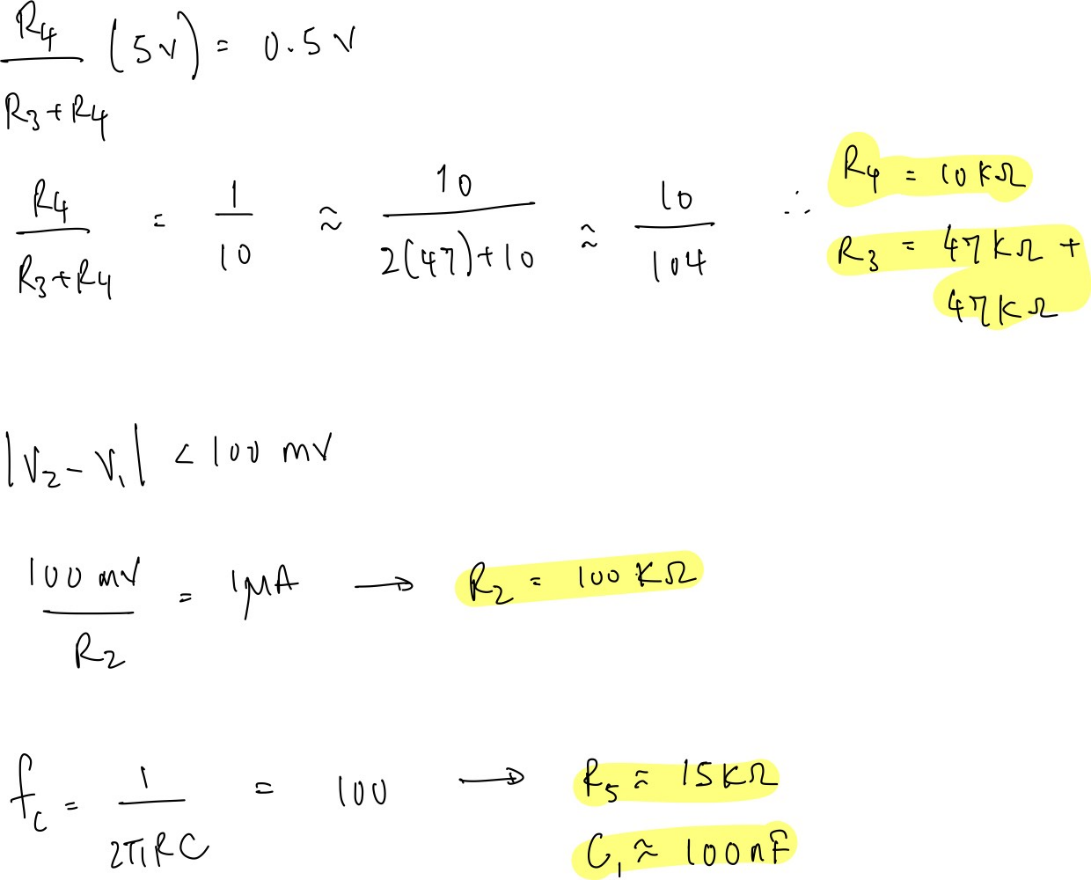 R4/(R3+R4) (5V) = 0.5V
R4/(R3+R4) = 1/10 ≈ 10/(2(47)+10) ≈ 10/104 ∴ R4 = 10KΩ
R3 = 47KΩ +
47KΩ
|V2-V1| < 100 mV
100 mV/R2 = 1μA → R2 = 100 KΩ
fc = 1/(2πRC) = 100 → R5 ≈ 15KΩ
C1 ≈ 100nF